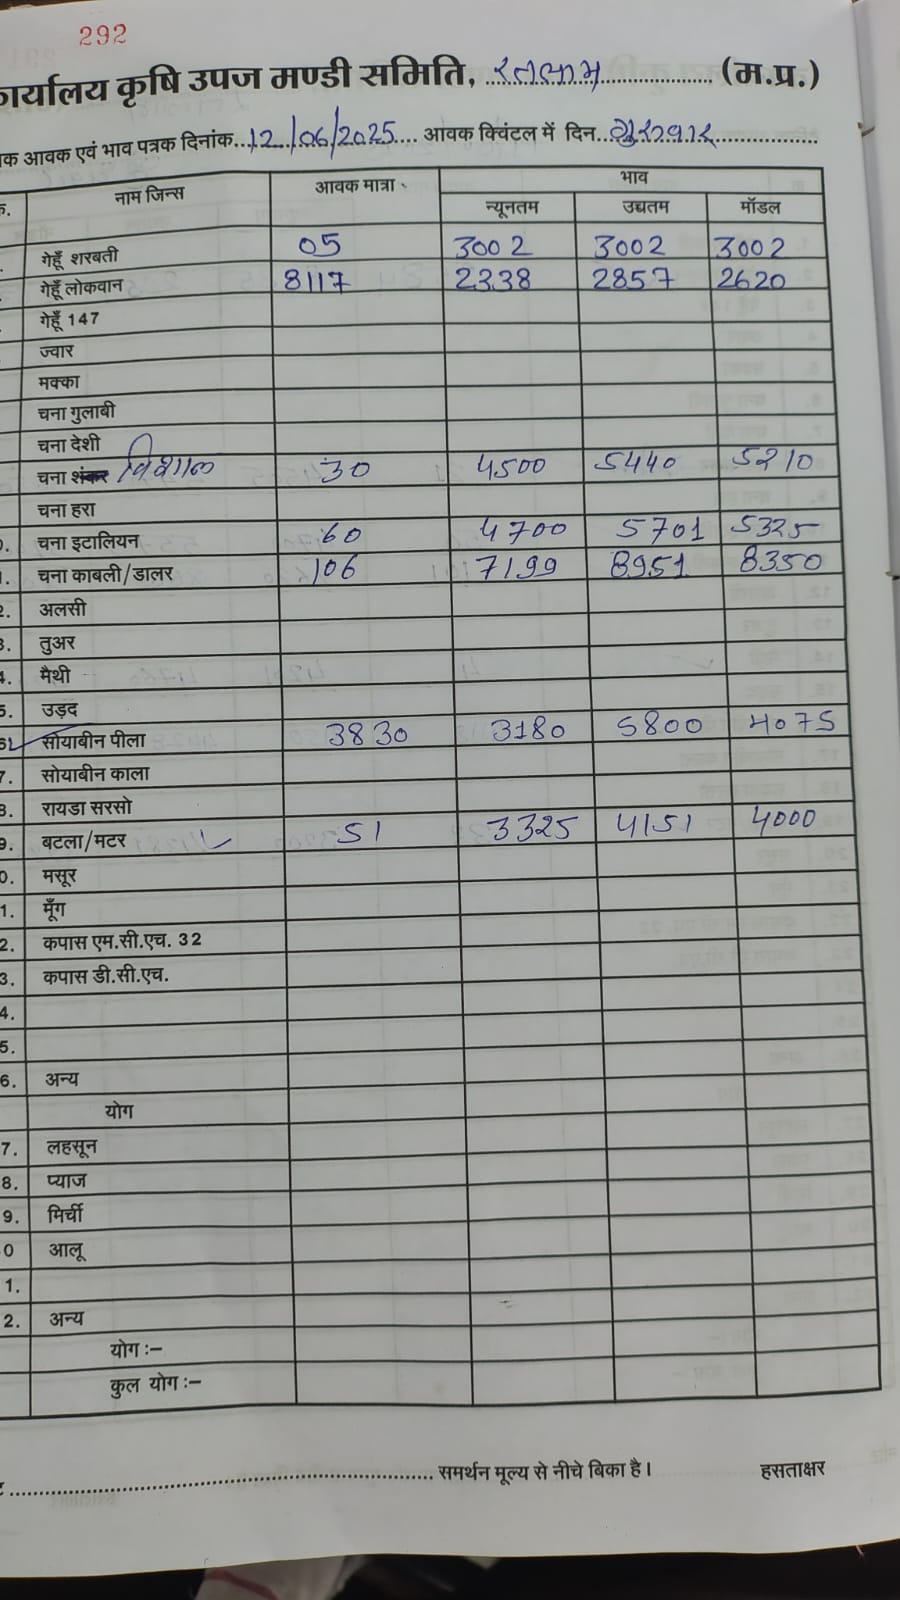 292
कार्यालय कृषि उपज मण्डी समिति, रतलाम (म.प्र.)
क आवक एवं भाव पत्रक दिनांक...12/06/2025... आवक क्विंटल में दिन..गुरुवार
क. नाम जिन्स आवक मात्रा भाव
न्यूनतम उच्चतम मॉडल
गेहूँ शरबती 05 3002 3002 3002
गेहूँ लोकवान 8117 2338 2857 2620
गेहूँ 147
ज्वार
मक्का
चना गुलाबी
चना देशी
चना शंकर विशाल 30 4500 5440 5210
चना हरा
0. चना इटालियन 60 4700 5701 5325
1. चना काबली/डालर 106 7199 8951 8350
2. अलसी
3. तुअर
4. मैथी
5. उड़द
6. सोयाबीन पीला 3830 3180 5800 4075
7. सोयाबीन काला
8. रायडा सरसो
9. बटला/मटर 51 3325 4151 4000
0. मसूर
1. मूँग
2. कपास एम.सी.एच. 32
3. कपास डी.सी.एच.
4.
5.
6. अन्य
योग
7. लहसून
8. प्याज
9. मिर्ची
0 आलू
1.
2. अन्य
योग :–
कुल योग :–
समर्थन मूल्य से नीचे बिका है। हसताक्षर